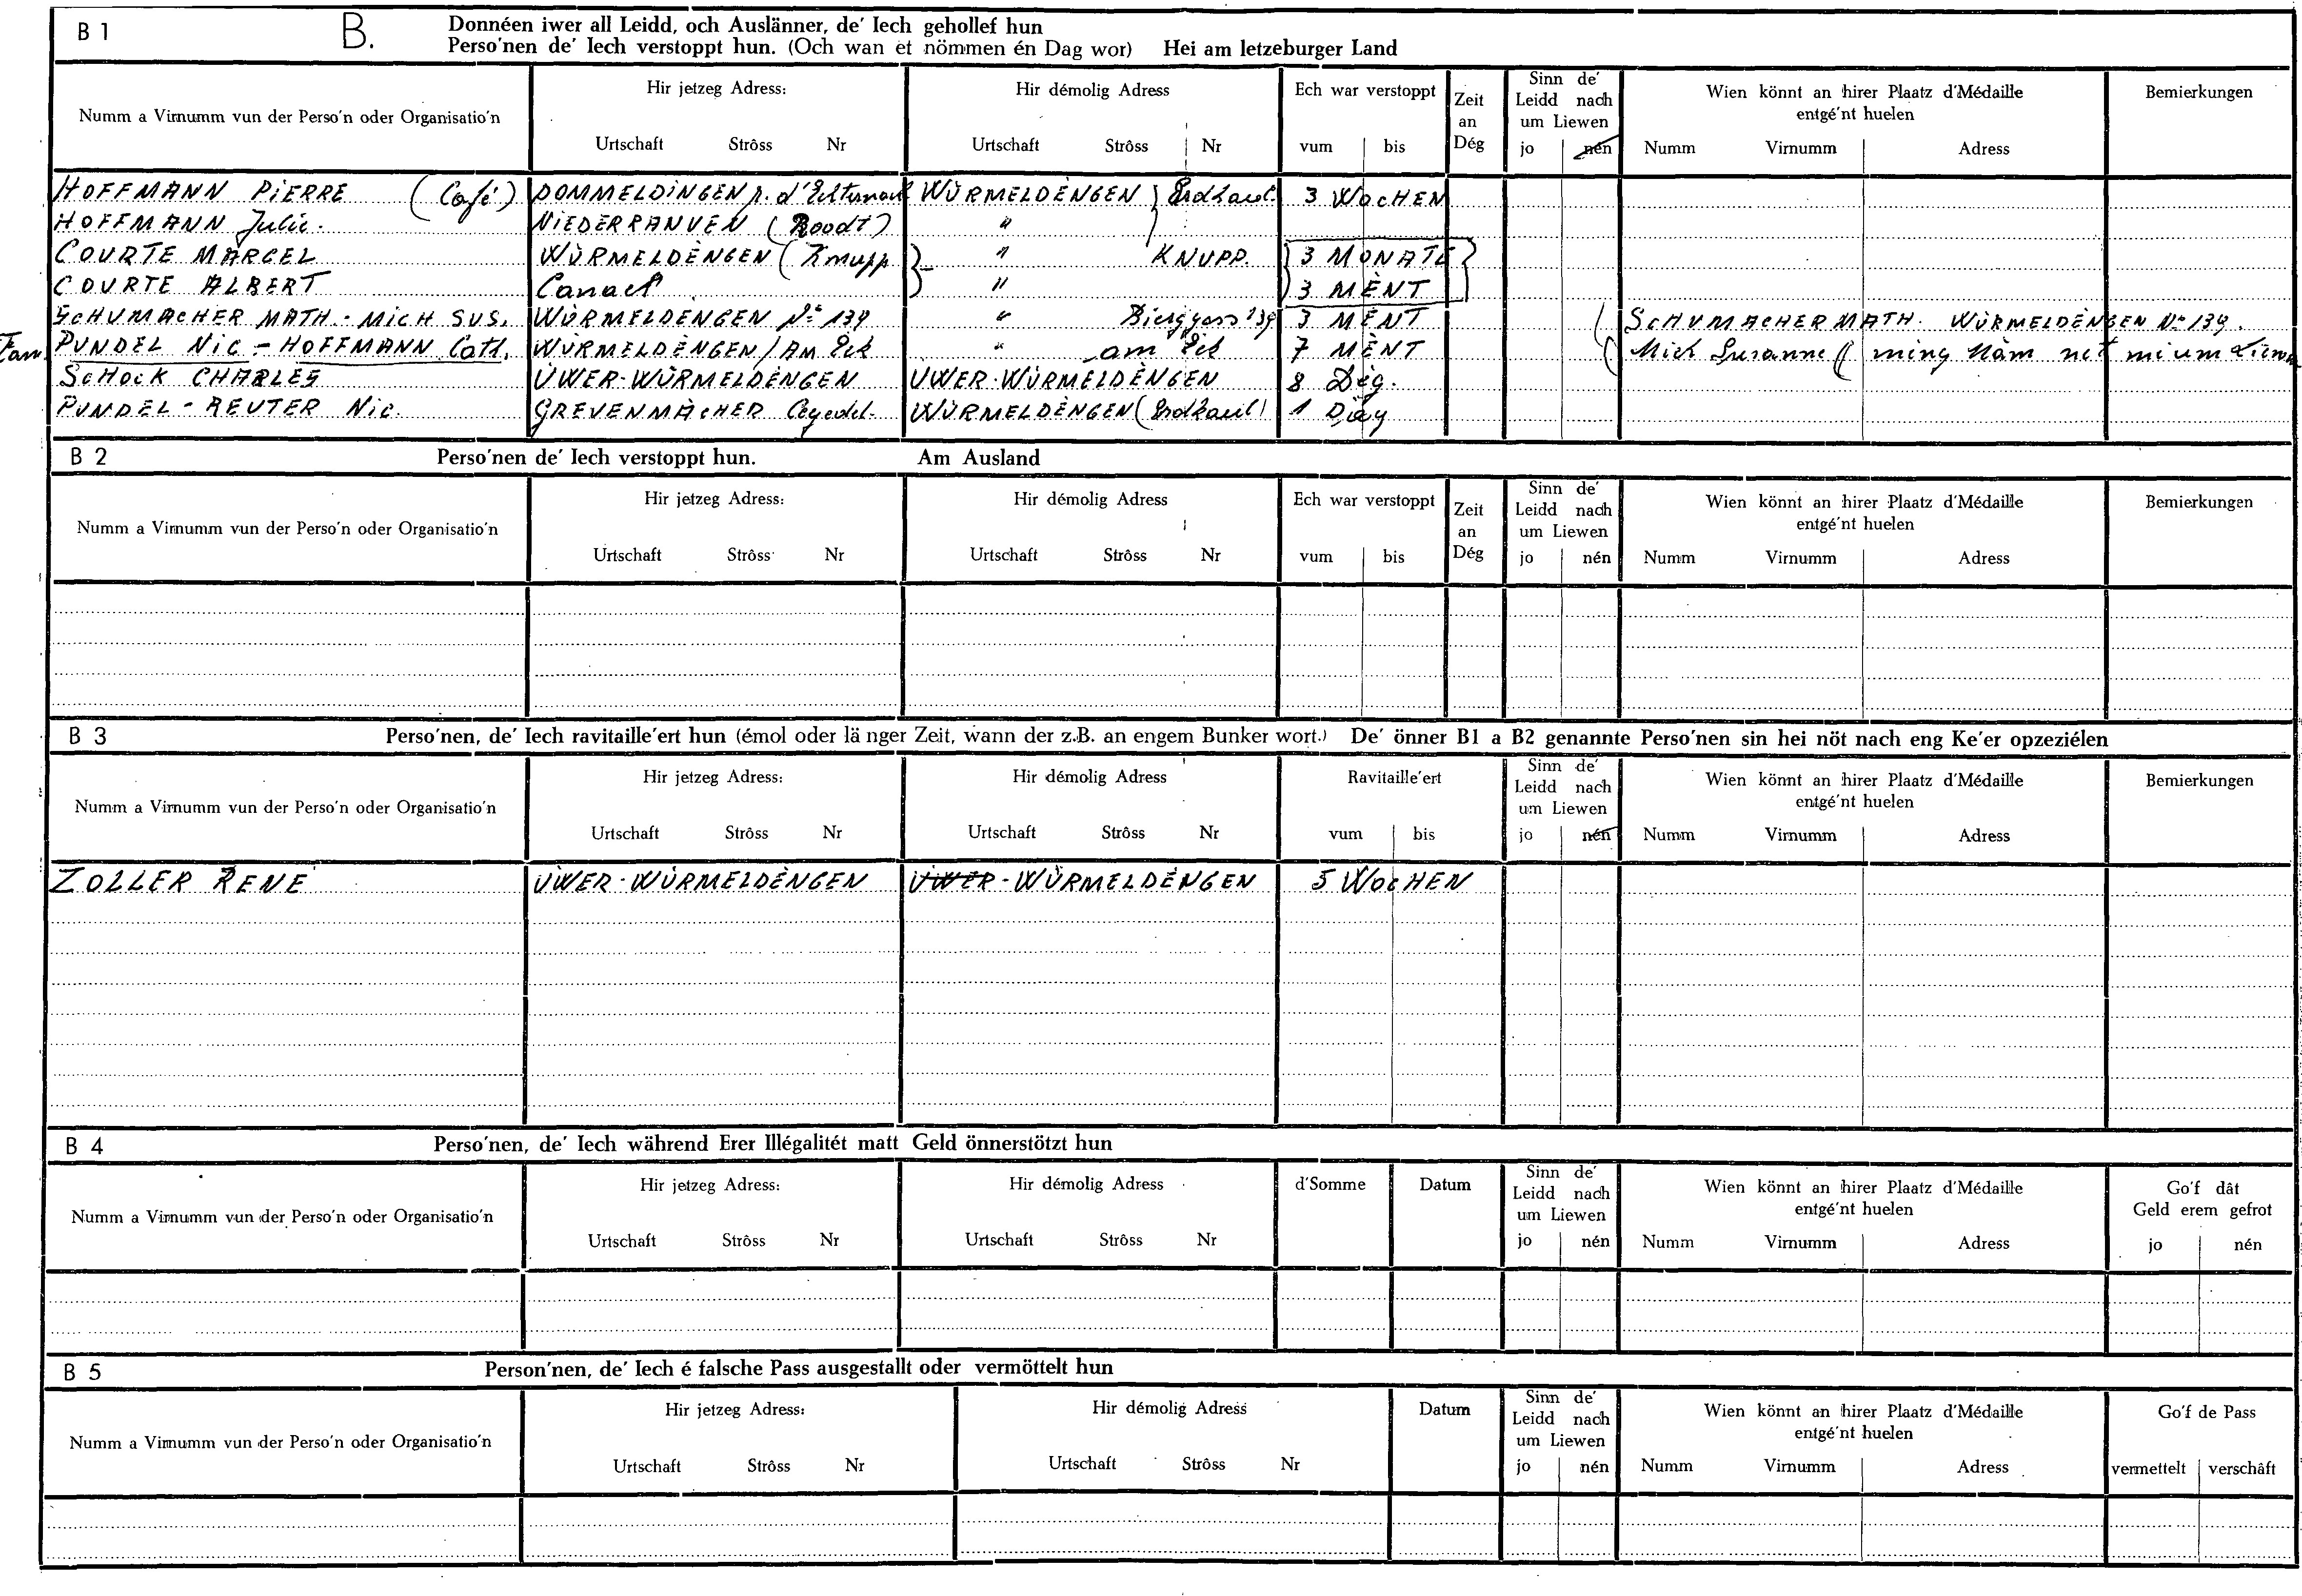 B 1 B. Donnéen iwer all Leidd, och Auslänner, de' Iech gehollef hun
Perso'nen de' Iech verstoppt hun. (Och wan et nömmen én Dag wor) Hei am letzeburger Land
Numm a Virnumm vun der Perso'n oder Organisatio'n
Hir jetzeg Adress:
Urtschaft Strôss Nr
Hir démolig Adress
Urtschaft Strôss Nr
Ech war verstoppt
vum bis
Zeit
an
Dég
Sinn de'
Leidd nach
um Liewen
jo nén
Wien könnt an hirer Plaatz d'Médaille
entgé'nt huelen
Numm Virnumm Adress
Bemierkungen
HOFFMANN PIERRE (Café) DOMMELDINGEN r. d'Echternach WÙRMELDÈNGEN Erdkaul. 3 WOCHEN
HOFFMANN Julie. NIEDERRANVEN (Roodt) "
COURTE MARCEL WÙRMELDÈNGEN (Knupp " KNUPP. 3 MONATE
COURTE ALBERT Canach " 3 MÈNT
SCHUMACHER MATH.- MICH SUS. WÙRMELDÈNGEN No 139 " 139 3 MÈNT SCHUMACHER MATH. WÙRMELDÈNGEN No 139.
Fam. PUNDEL NIC.- HOFFMANN Cath. WÙRMELDÈNGEN / AM Eck " am Eck 7 MÈNT Mich Susanne ming Mam net mi um Liewen
SCHOCK CHARLES ÙWER-WÙRMELDÈNGEN ÙWER-WÙRMELDÈNGEN 8 Dèg.
PUNDEL-REUTER NIC. GREVENMÀCHER WÙRMELDÈNGEN (Erdkaul) 1 Dag
B 2 Perso'nen de' Iech verstoppt hun. Am Ausland
Numm a Virnumm vun der Perso'n oder Organisatio'n
Hir jetzeg Adress:
Urtschaft Strôss Nr
Hir démolig Adress
Urtschaft Strôss Nr
Ech war verstoppt
vum bis
Zeit
an
Dég
Sinn de'
Leidd nach
um Liewen
jo nén
Wien könnt an hirer Plaatz d'Médaille
entgé'nt huelen
Numm Virnumm Adress
Bemierkungen
B 3 Perso'nen, de' Iech ravitaille'ert hun (émol oder lä nger Zeit, wann der z.B. an engem Bunker wort.) De' önner B1 a B2 genannte Perso'nen sin hei nöt nach eng Ke'er opzeziélen
Numm a Virnumm vun der Perso'n oder Organisatio'n
Hir jetzeg Adress:
Urtschaft Strôss Nr
Hir démolig Adress
Urtschaft Strôss Nr
Ravitaille'ert
vum bis
Sinn de'
Leidd nach
um Liewen
jo nén
Wien könnt an hirer Plaatz d'Médaille
entgé'nt huelen
Numm Virnumm Adress
Bemierkungen
ZOLLER RENE ÙWER-WÙRMELDÈNGEN ÙWER-WÙRMELDÈNGEN 5 WOCHEN
B 4 Perso'nen, de' Iech während Erer Illégalitét matt Geld önnerstötzt hun
Numm a Virnumm vun der Perso'n oder Organisatio'n
Hir jetzeg Adress:
Urtschaft Strôss Nr
Hir démolig Adress
Urtschaft Strôss Nr
d'Somme
Datum
Sinn de'
Leidd nach
um Liewen
jo nén
Wien könnt an hirer Plaatz d'Médaille
entgé'nt huelen
Numm Virnumm Adress
Go'f dât
Geld erem gefrot
jo nén
B 5 Person'nen, de' Iech é falsche Pass ausgestallt oder vermöttelt hun
Numm a Virnumm vun der Perso'n oder Organisatio'n
Hir jetzeg Adress:
Urtschaft Strôss Nr
Hir démolig Adress
Urtschaft Strôss Nr
Datum
Sinn de'
Leidd nach
um Liewen
jo nén
Wien könnt an hirer Plaatz d'Médaille
entgé'nt huelen
Numm Virnumm Adress
Go'f de Pass
vermettelt verschâft